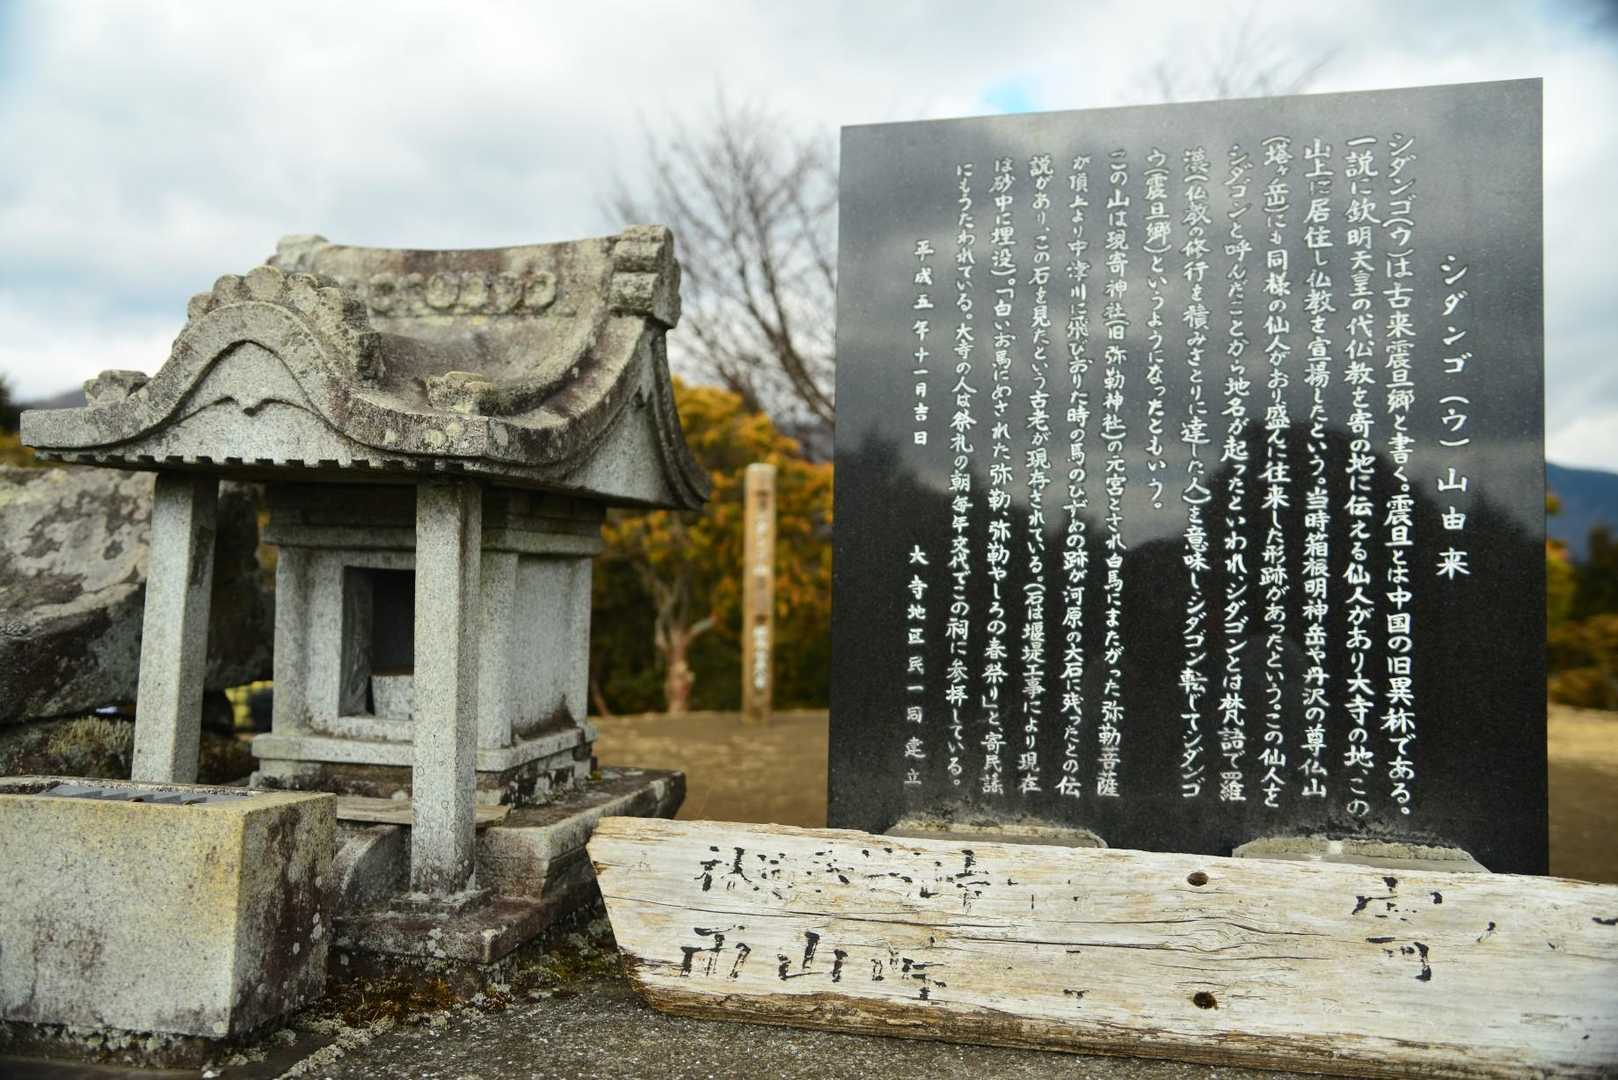 シダンゴ(ウ)山由来
シダンゴ(ウ)は古来震旦郷と書く。震旦とは中国の旧異称である。
一説に欽明天皇の代仏教を寄の地に伝える仙人があり大寺の地、この
山上に居住し仏教を宣揚したという。当時箱根明神岳や丹沢の尊仏山
(塔ヶ岳)にも同様の仙人がおり盛んに往来した形跡があったという。この仙人を
シダゴンと呼んだことから地名が起ったといわれ、シダゴンとは梵語で羅
漢(仏教の修行を積みさとりに達した人)を意味しシダゴン転じてシダンゴ
ウ(震旦郷)というようになったともいう。
この山は現寄神社(旧弥勒神社)の元宮とされ白馬にまたがった弥勒菩薩
が頂上より中津川に飛びおりた時の馬のひづめの跡が河原の大石に残ったとの伝
説があり、この石を見たという古老が現存されている。(石は堰堤工事により現在
は砂中に埋没)。「白いお馬にめされた弥勒、弥勒やしろの春祭り」と寄民謡
にもうたわれている。大寺の人は祭礼の朝毎年交代でこの祠に参拝している。
平成五年十一月吉日
大寺地区民一同建立